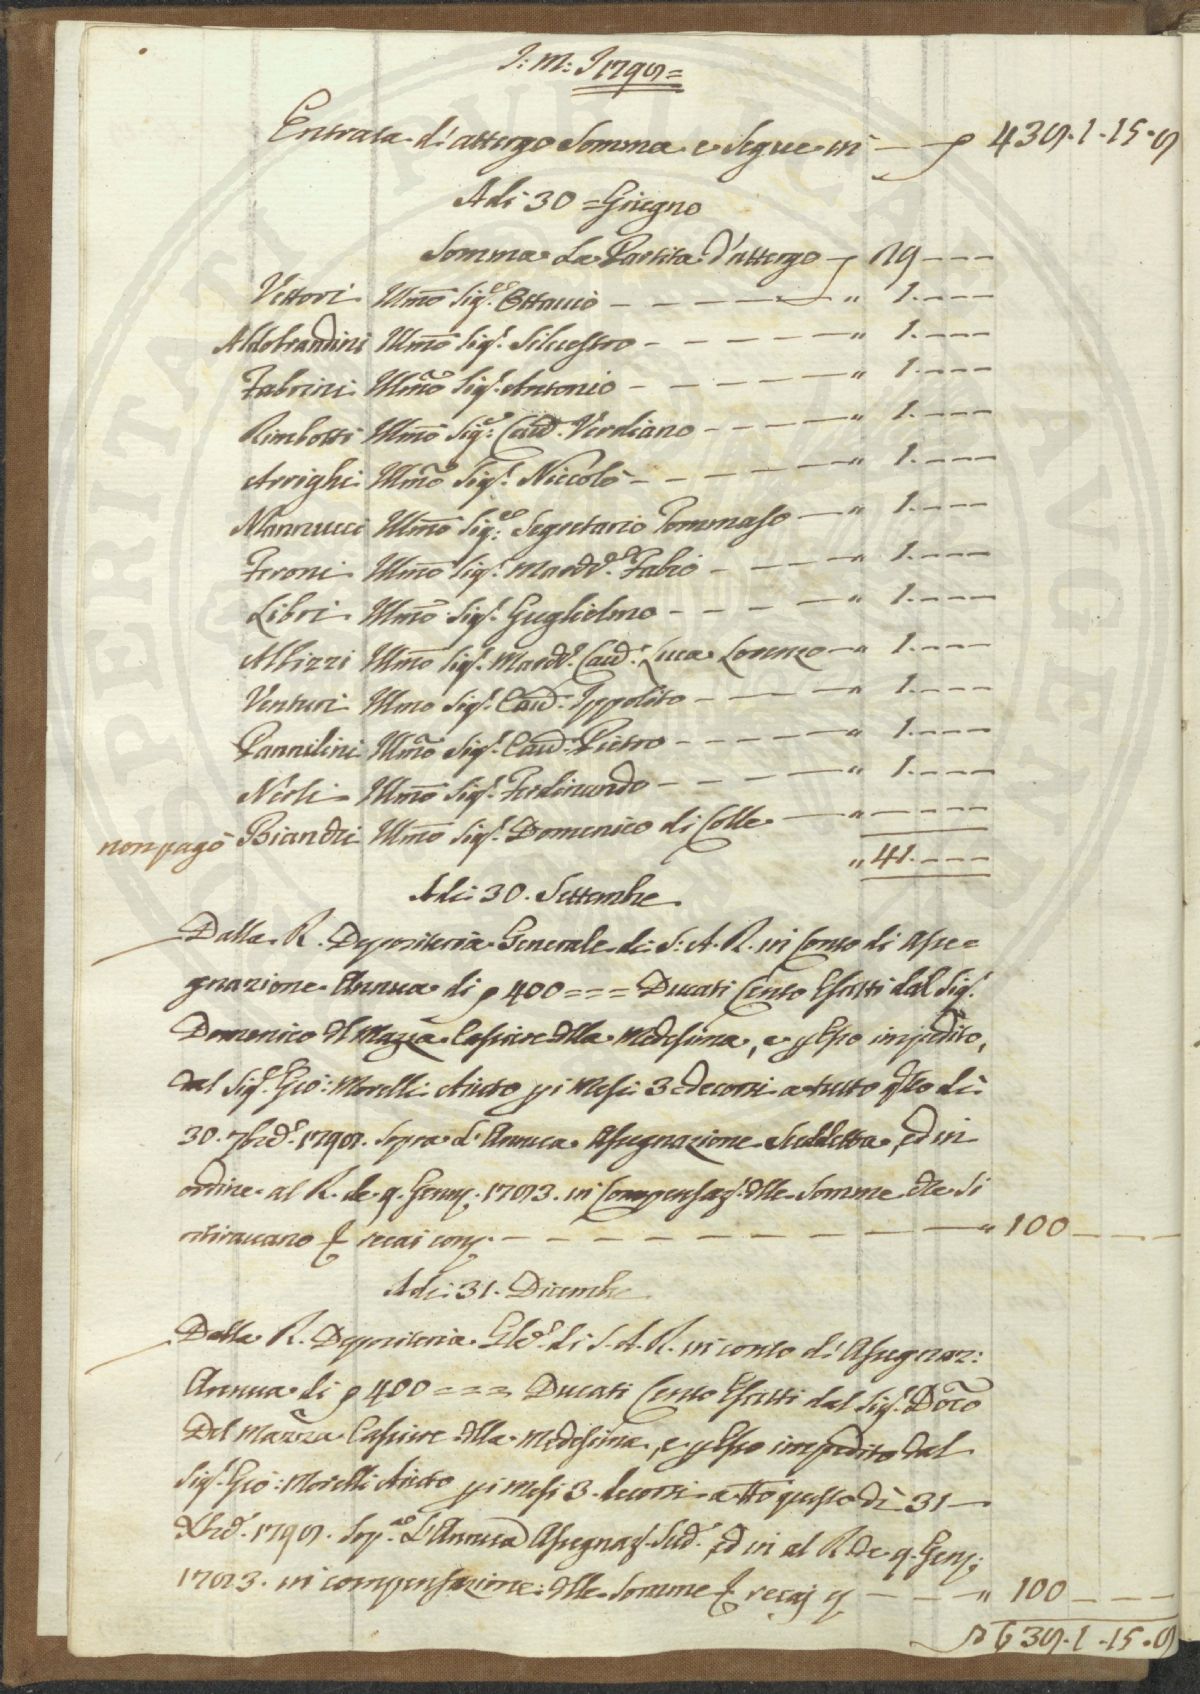 J: M: J 1795=
Entrata d'attergo Somma e Segue in 435.1.15.5
Adi 30 = Giugno
Somma La Partita d'attergo 29
Vettori Illmo Sigre Ottavio " 1.
Aldobrandini Illmo Sigr. Silvestro " 1.
Fabrini Illmo Sigr. Antonio " 1.
Rimbotti Illmo Sigre: Cavd. Verdiano " 1.
Arrighi Illmo Sigr. Niccolò " 1.
Mannucci Illmo Sigre: Segretario Tommaso " 1.
Feroni Illmo Sigr. Fabio " 1.
Libri Illmo Sigr. Guglielmo " 1.
Albizzi Illmo Sigr. Cavd. Luca Lorenzo " 1.
Venturi Illmo Sigr. Cavd. Ippolito " 1.
Pannilini Illmo Sigr. Cavd. Pietro " 1.
Nerli Illmo Sigr. Ferdinando " 1.
non pagò Bianchi Illmo Sigr. Domenico di Colle "
" 41.
Adi: 30. Settembre
Dalla R. Depositeria Generale di S: A. R. in Conto di Asse=
gnazione Annua di 400 === Ducati Cento Esatti dal Sigr.
Domenico del Mazza Cassiere della Medesima, e p Esso impedito,
dal Sigr. Gio: Morelli Aiuto pi Mesi 3 decorsi a tutto qsto dì
30. 7bre 1795. Sopra l'Annua Assegnazione Suddetta, ed in
ordine al R. de 9. Genn. in Compensaz. delle Somme che si
ritiravano 100
Adi: 31. Dicembre
Dalla R. Depositeria di S. A. R. in conto di Assegnaz:
Annua di 400 === Ducati Cento Esatti dal Sigr. Domco
Del Mazza Cassiere della Medesima, e p Esso impedito dal
Sigr. Gio: Morelli Aiuto pi Mesi 3. decorsi a tto questo dì 31
Xbre 1795. Sopra L'Annua Assegnaz. Sud. ed in al R. de 9. Genn:
in compensazione: delle Somme " 100
635.1.15.5